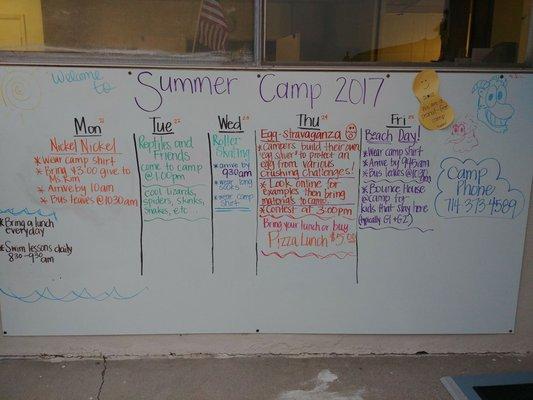 Welcome to
Summer Camp 2017
Mon
Nickel Nickel
*Wear camp shirt
*Bring $3.00 give to
Ms. Kim
*Arrive by 10am
*Bus leaves @10:30am
*Bring a lunch
everyday
*Swim lessons daily
8:30-9:30am
Tue
Reptiles and
Friends
come to camp
@1:00pm
cool lizards,
spiders, skinks,
snakes, etc
Wed
Roller
Skating
*arrive by
9:30am
*wear long
socks
*wear camp
shirt
Thu
Egg-stravaganza
*Campers build their own
egg silver to protect an
egg from various
crushing challenges!
*Look online for
examples then bring
materials to camp
*Contest at 3:00pm
Bring your lunch or buy
Pizza Lunch $5.00
Fri
Beach Day!
*Wear camp shirt
*Arrive by 9:45am
*Bus leaves @10:30
*Bounce House
@camp for
kids that stay here
(typically G1+G2)
camp
Camp
Phone
714 373-4509